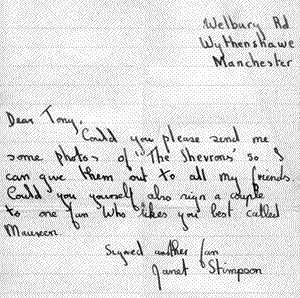 Welbury Rd
Wythenshawe
Manchester
Dear Tony,
Could you please send me
some photos of 'The Shevrons' so I
can give them out to all my friends.
Could you yourself also sign a couple
to one fan who likes you best called
Maureen.
Signed another fan
Janet Stimpson